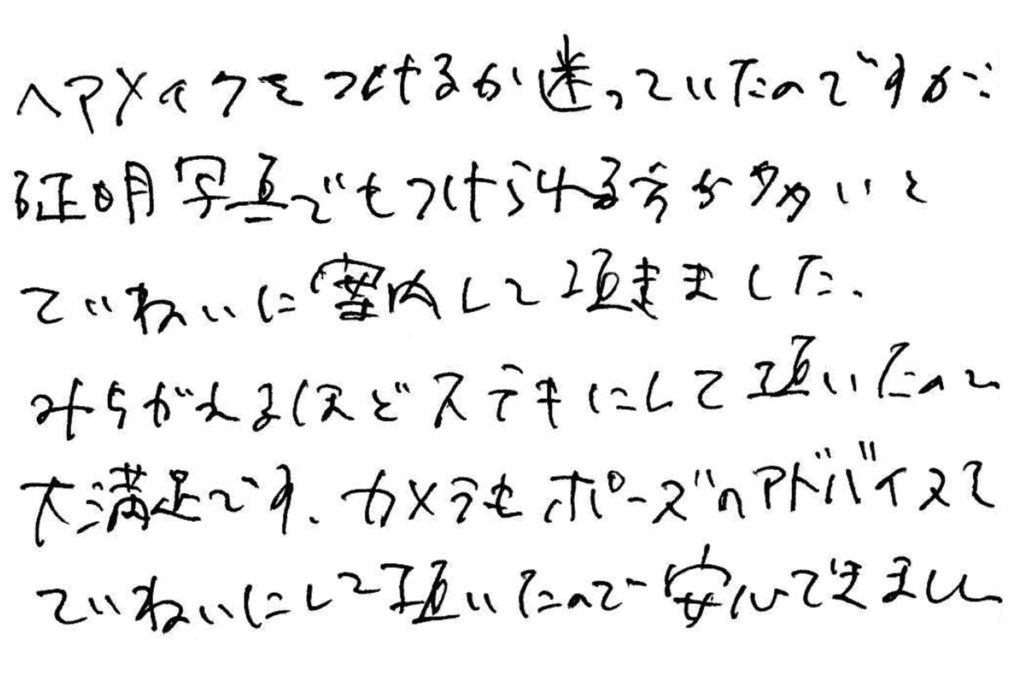 ヘアメイクをつけるか迷っていたのですが、
証明写真でもつけられる方が多いと
ていねいに案内して頂きました。
みちがえるほどステキにして頂いたので
大満足です。カメラもポーズのアドバイスまで
ていねいにして頂いたので安心できまし